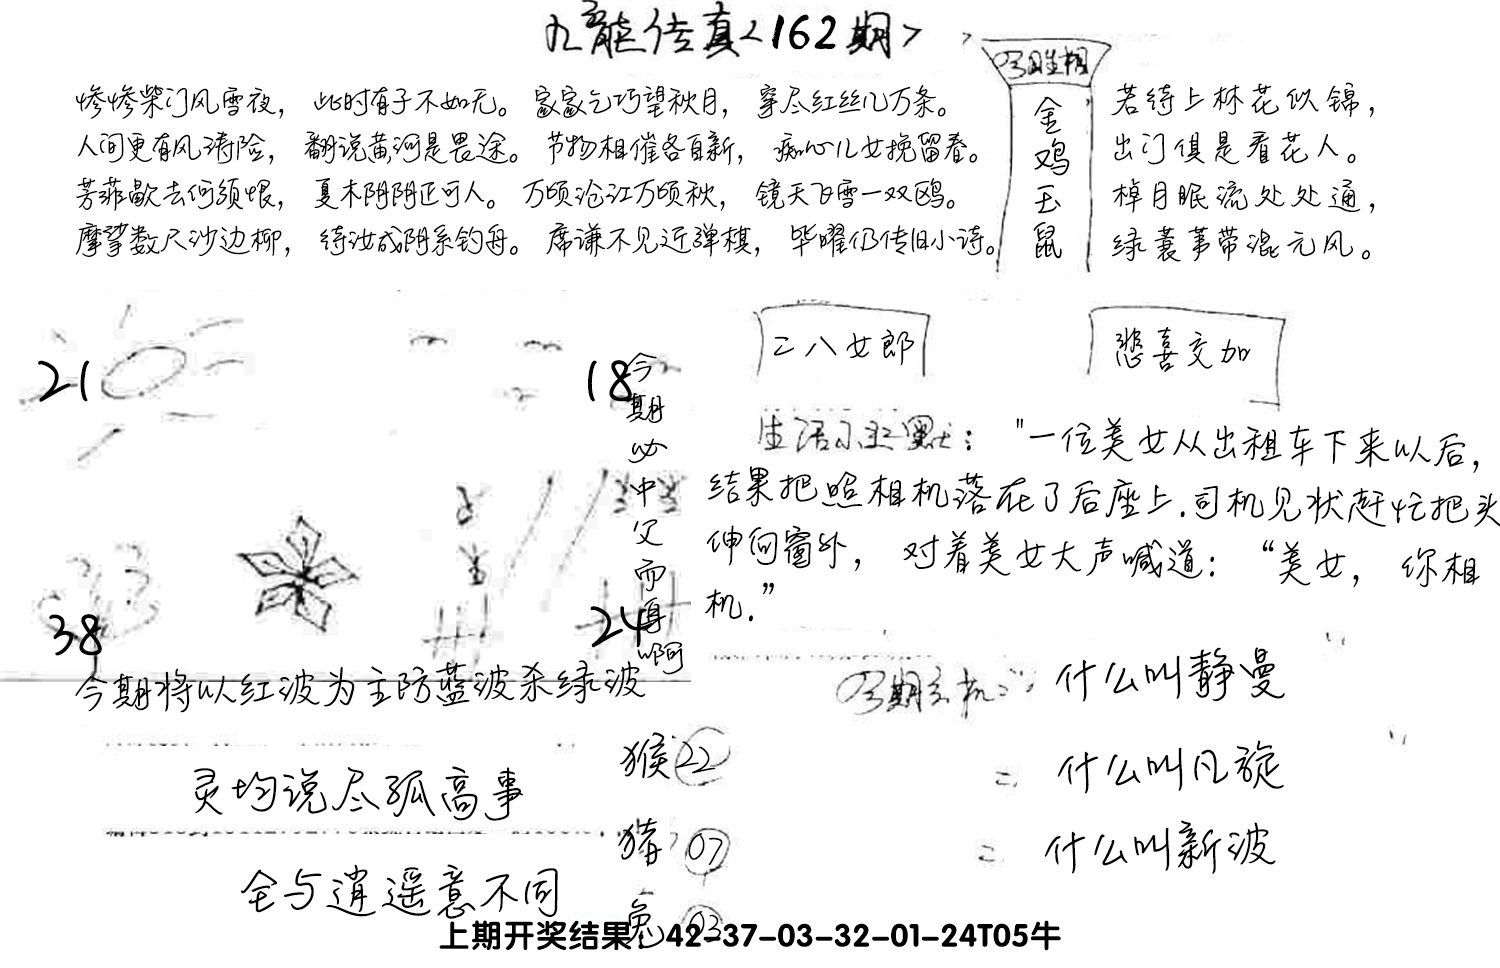 九龙传真<162期>
惨惨柴门风雪夜，此时有子不如无。家家乞巧望秋月，穿尽红丝几万条。
人间更有风涛险，翻说黄河是畏途。节物相催各自新，痴心儿女挽留春。
芳菲歇去何须恨，夏木阴阴正可人。万顷沧江万顷秋，镜天飞雪一双鸥。
摩挲数尺沙边柳，待汝成阴系钓舟。席谦不见近弹棋，毕曜仍传旧小诗。
今日生相
金鸡玉鼠
若待上林花似锦，
出门俱是看花人。
棹月眠流处处通，
绿蓑苇带混元风。
21
18
38
24
今期必中父而再啊
今期将以红波为主防蓝波杀绿波
二八女郎
悲喜交加
生活幽默："一位美女从出租车下来以后，
结果把照相机落在了后座上.司机见状赶忙把头
伸向窗外，对着美女大声喊道："美女，你相
机."
今期玄机：什么叫静曼
= 什么叫凡旋
= 什么叫新波
灵均说尽孤高事
全与逍遥意不同
猴22
猪07
兔03
上期开奖结果：42-37-03-32-01-24T05牛